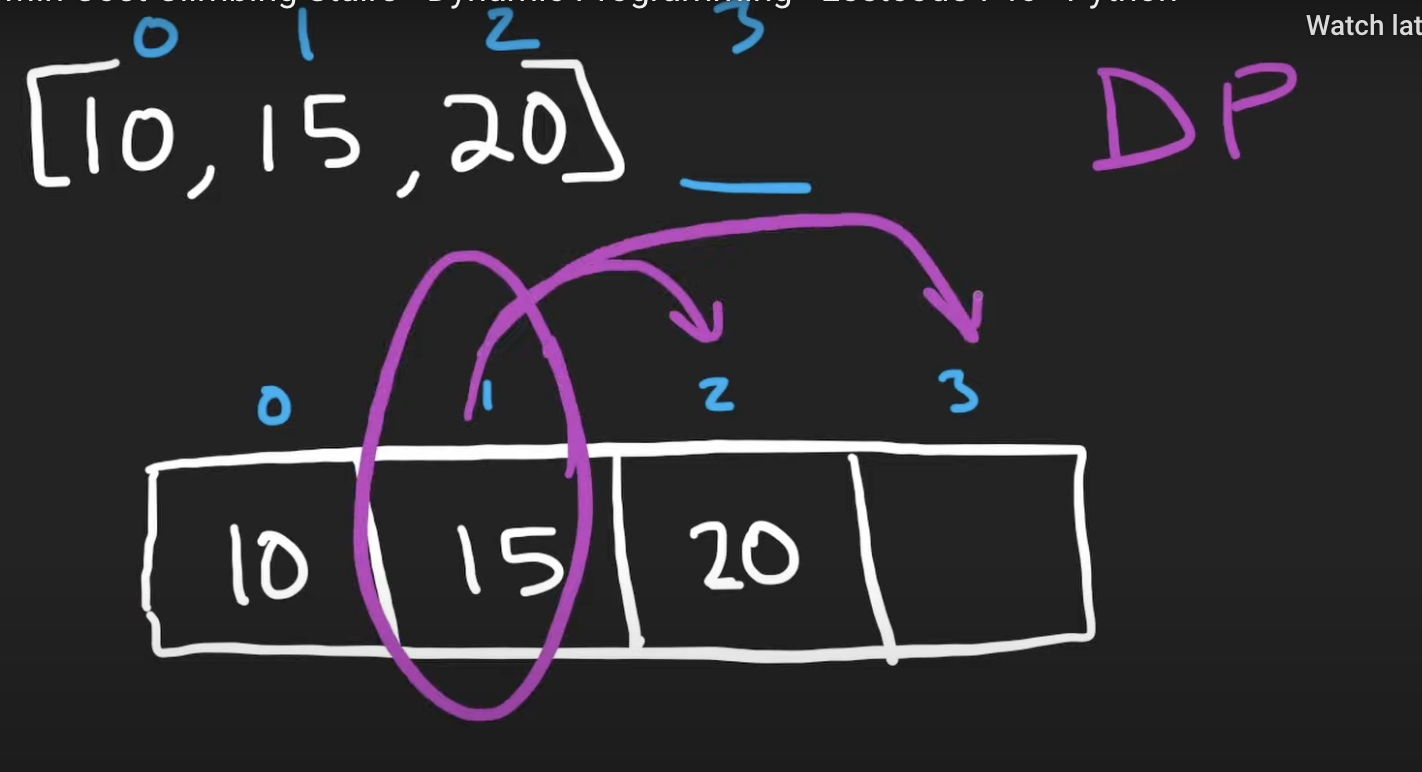 Min Cost Climbing Stairs - Dynamic Programming - Leetcode 746 - Python
Watch lat
0 1 2 3
[10, 15, 20]
DP
0 1 2 3
10 15 20